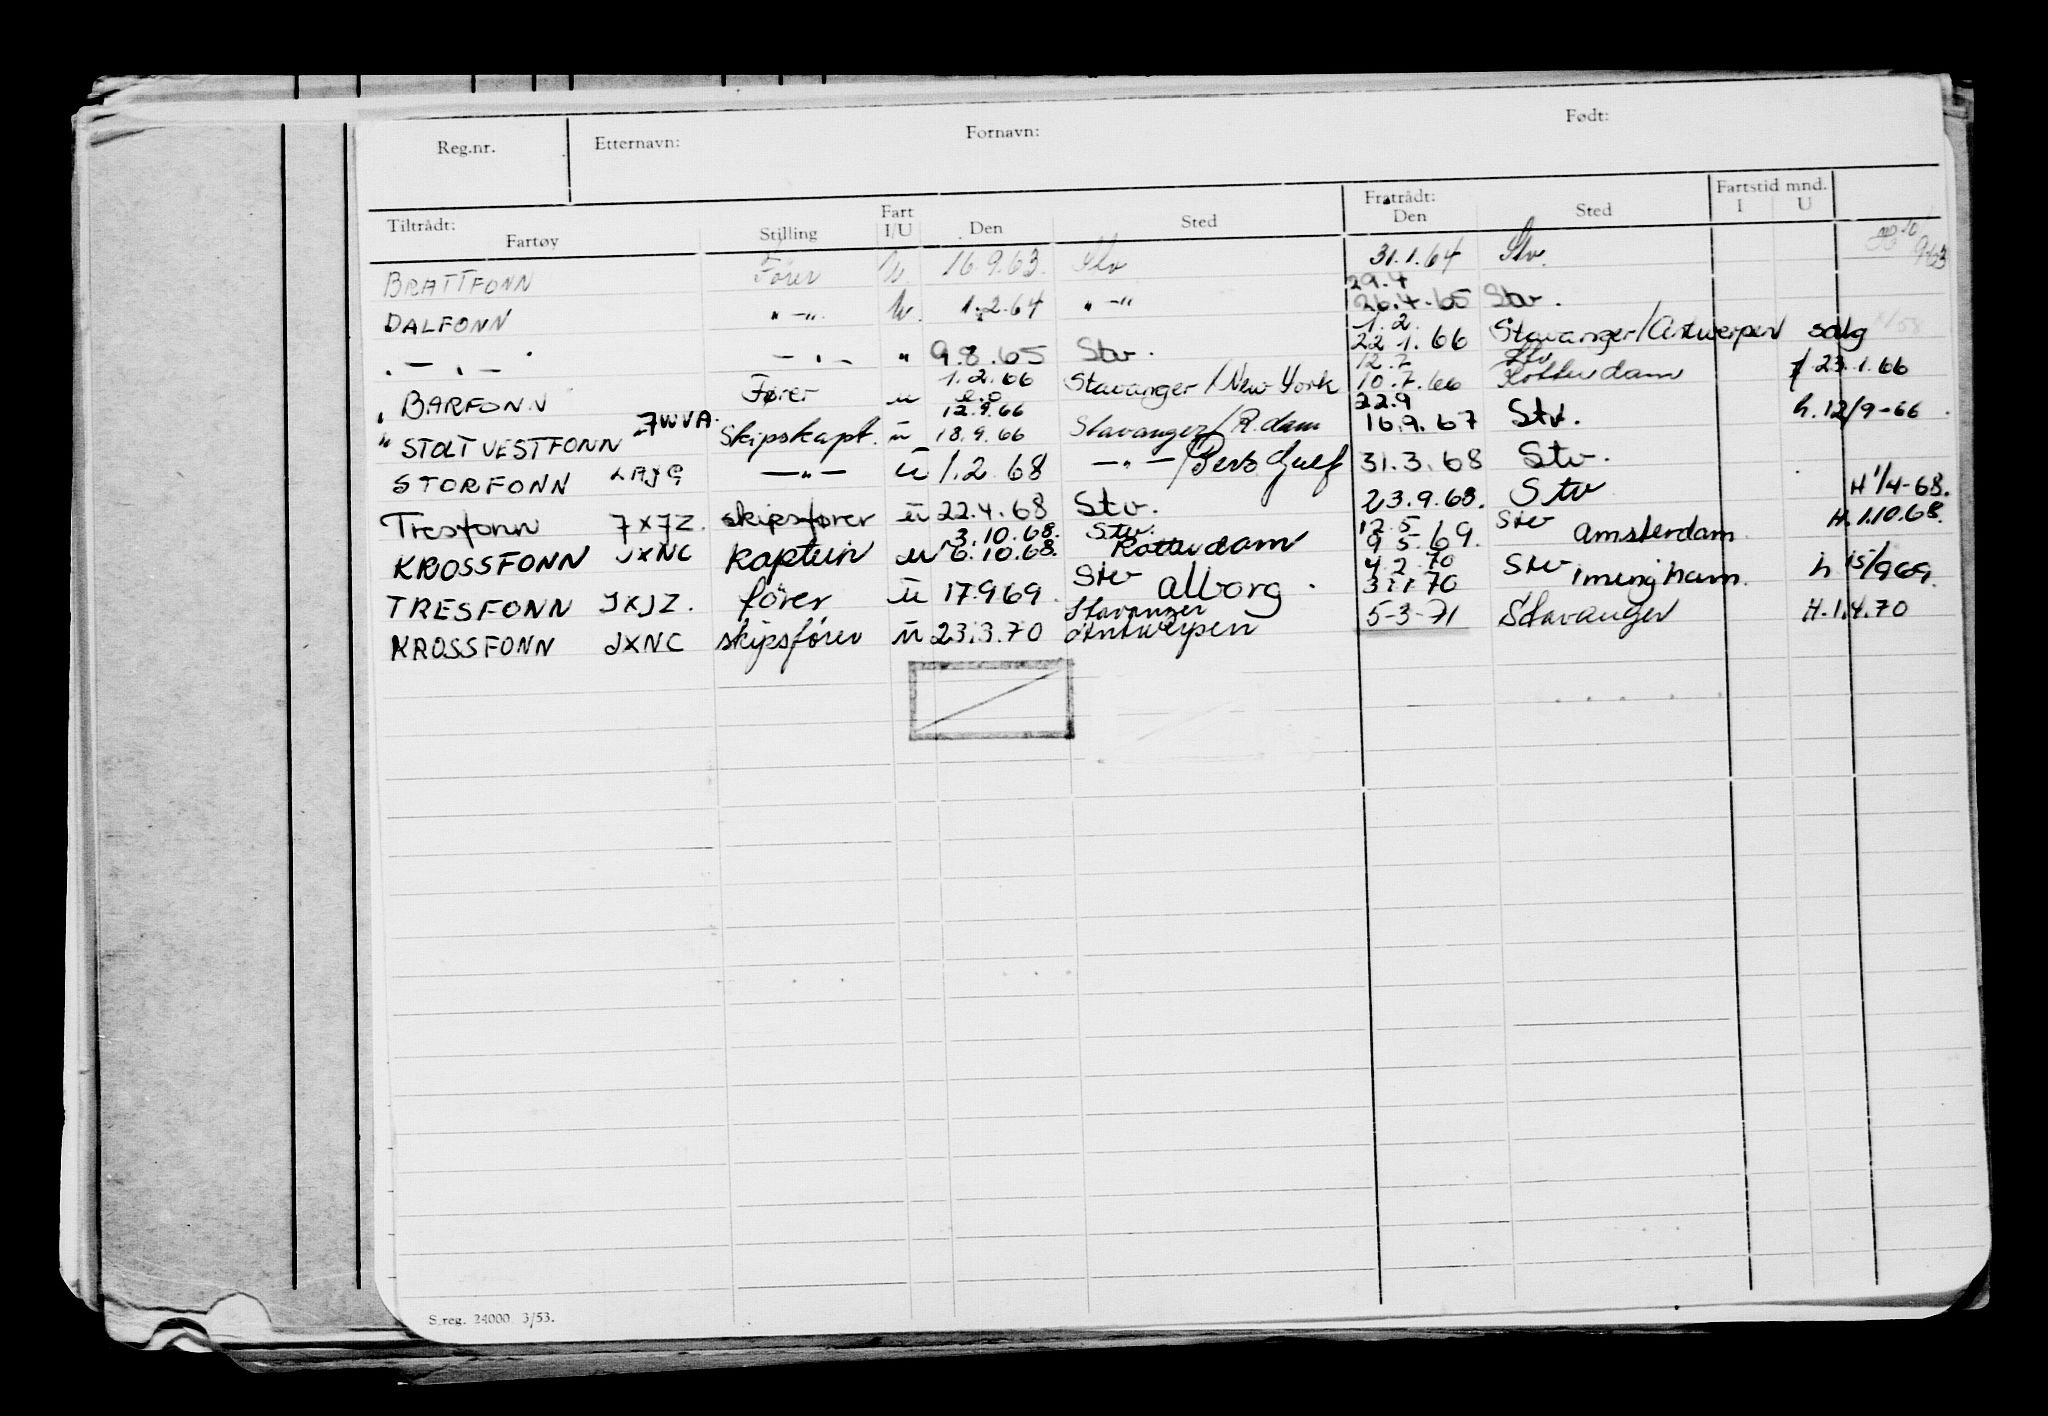 Reg.nr. Etternavn: Fornavn: Født:
Tiltrådt: Fratrådt: Fartstid mnd.
Fartøy Stilling Fart I/U Den Sted Den Sted I U
BRATTFONN Fører U 16.9.63. Stv 31.1.64 Stv.
29.4
DALFONN " - " U. 1.2.64 " - " 26.4.65 Stv.
1.2.
" - " - " - " 9.8.65 Stv. 22.1.66 Stavanger/Antwerpen salg
1.2.66 12.7 Stv
" BARFONN Fører u Stavanger/New York 10.7.66 Rotterdam 23.1.66
12.9.66 22.9
" STOLT VESTFONN JWVA. Skipskapt. u 18.9.66 Stavanger/R.dam 16.9.67 Stv. h. 12/9-66.
STORFONN LAJG - " - u 1.2.68 - " - /Pers Gulf 31.3.68 Stv.
Tresfonn JXJZ. skipsfører u 22.4.68 Stv. 23.9.68. Stv H 1/4-68.
3.10.68. Stv. 12.5 Stv
KROSSFONN JXNC kaptein u 6.10.68. Rotterdam 9 5.69. Amsterdam H. 1.10.68.
4.2.70
TRESFONN JXJZ. fører u 17.9.69. Stv Alborg. 31.1.70 Stv Imingham. h 15/9 69.
Stavanger
KROSSFONN JXNC skipsfører u 23.3.70 Antwerpen 5-3-71 Stavanger H. 1.4.70
S.reg. 24000 3/53.